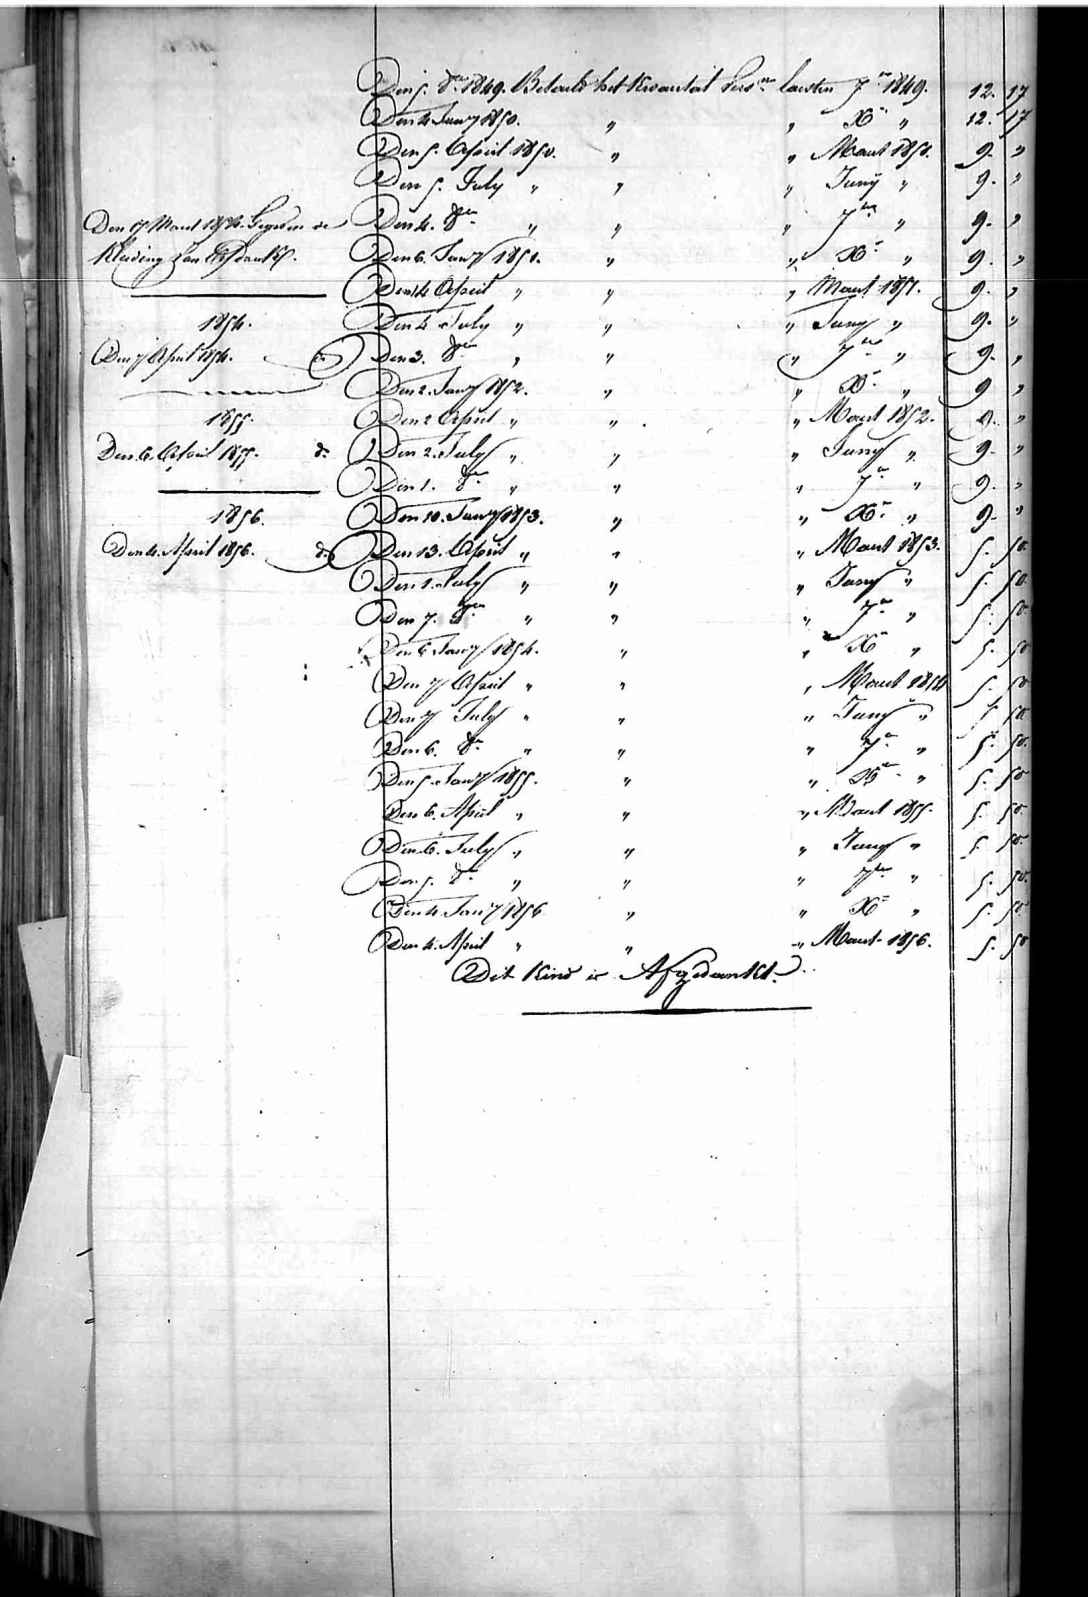 Den 5. 8er 1849. Betaald het Kwartaal Pers.n laasten 7er 1849. 12. 17
Den 4 Jany 1850. " " Xr " 12. 17
Den 5. April 1850. " " Maart 1850. 9. "
Den 5. July " " " Juny " 9. "
Den 4. 8er " " " 7er " 9. "
Den 6. Jany 1851. " " Xr " 9. "
Den 4 April " " " Maart 1851. 9. "
Den 4 July " " " Juny " 9. "
Den 3. 8er " " " 7er " 9. "
Den 2. Jany 1852. " " Xr " 9 "
Den 2 April " " " Maart 1852. 9. "
Den 2. July " " " Juny " 9. "
Den 1. 8er " " " 7er " 9. "
Den 10. Jany 1853. " " Xr " 9. "
Den 13. April " " " Maart 1853. 5. 50.
Den 1. July " " " Juny " 5. 50.
Den 7. 8er " " " 7er " 5. 50.
Den 6 Jany 1854. " " Xr " 5. 50
Den 7 April " " " Maart 1854 5. 50
Den 7 July " " " Juny " 5 50.
Den 6. 8er " " " 7er " 5. 50.
Den 5. Jany 1855. " " Xr " 5. 50
Den 6. April " " " Maart 1855. 5. 50.
Den 6. July " " " Juny " 5. 50.
Den 5. 8er " " " 7er " 5. 50.
Den 4. Jany 1856 " " Xr " 5. 50
Den 4. April " " " Maart 1856. 5. 50
Dit Kind is Afgedankt.
Den 17 Maart 1854. Gegeven de
Kleding
1854.
Den 7 April 1854. do
1855.
Den 6. April 1855. do
1856.
Den 4. April 1856. do